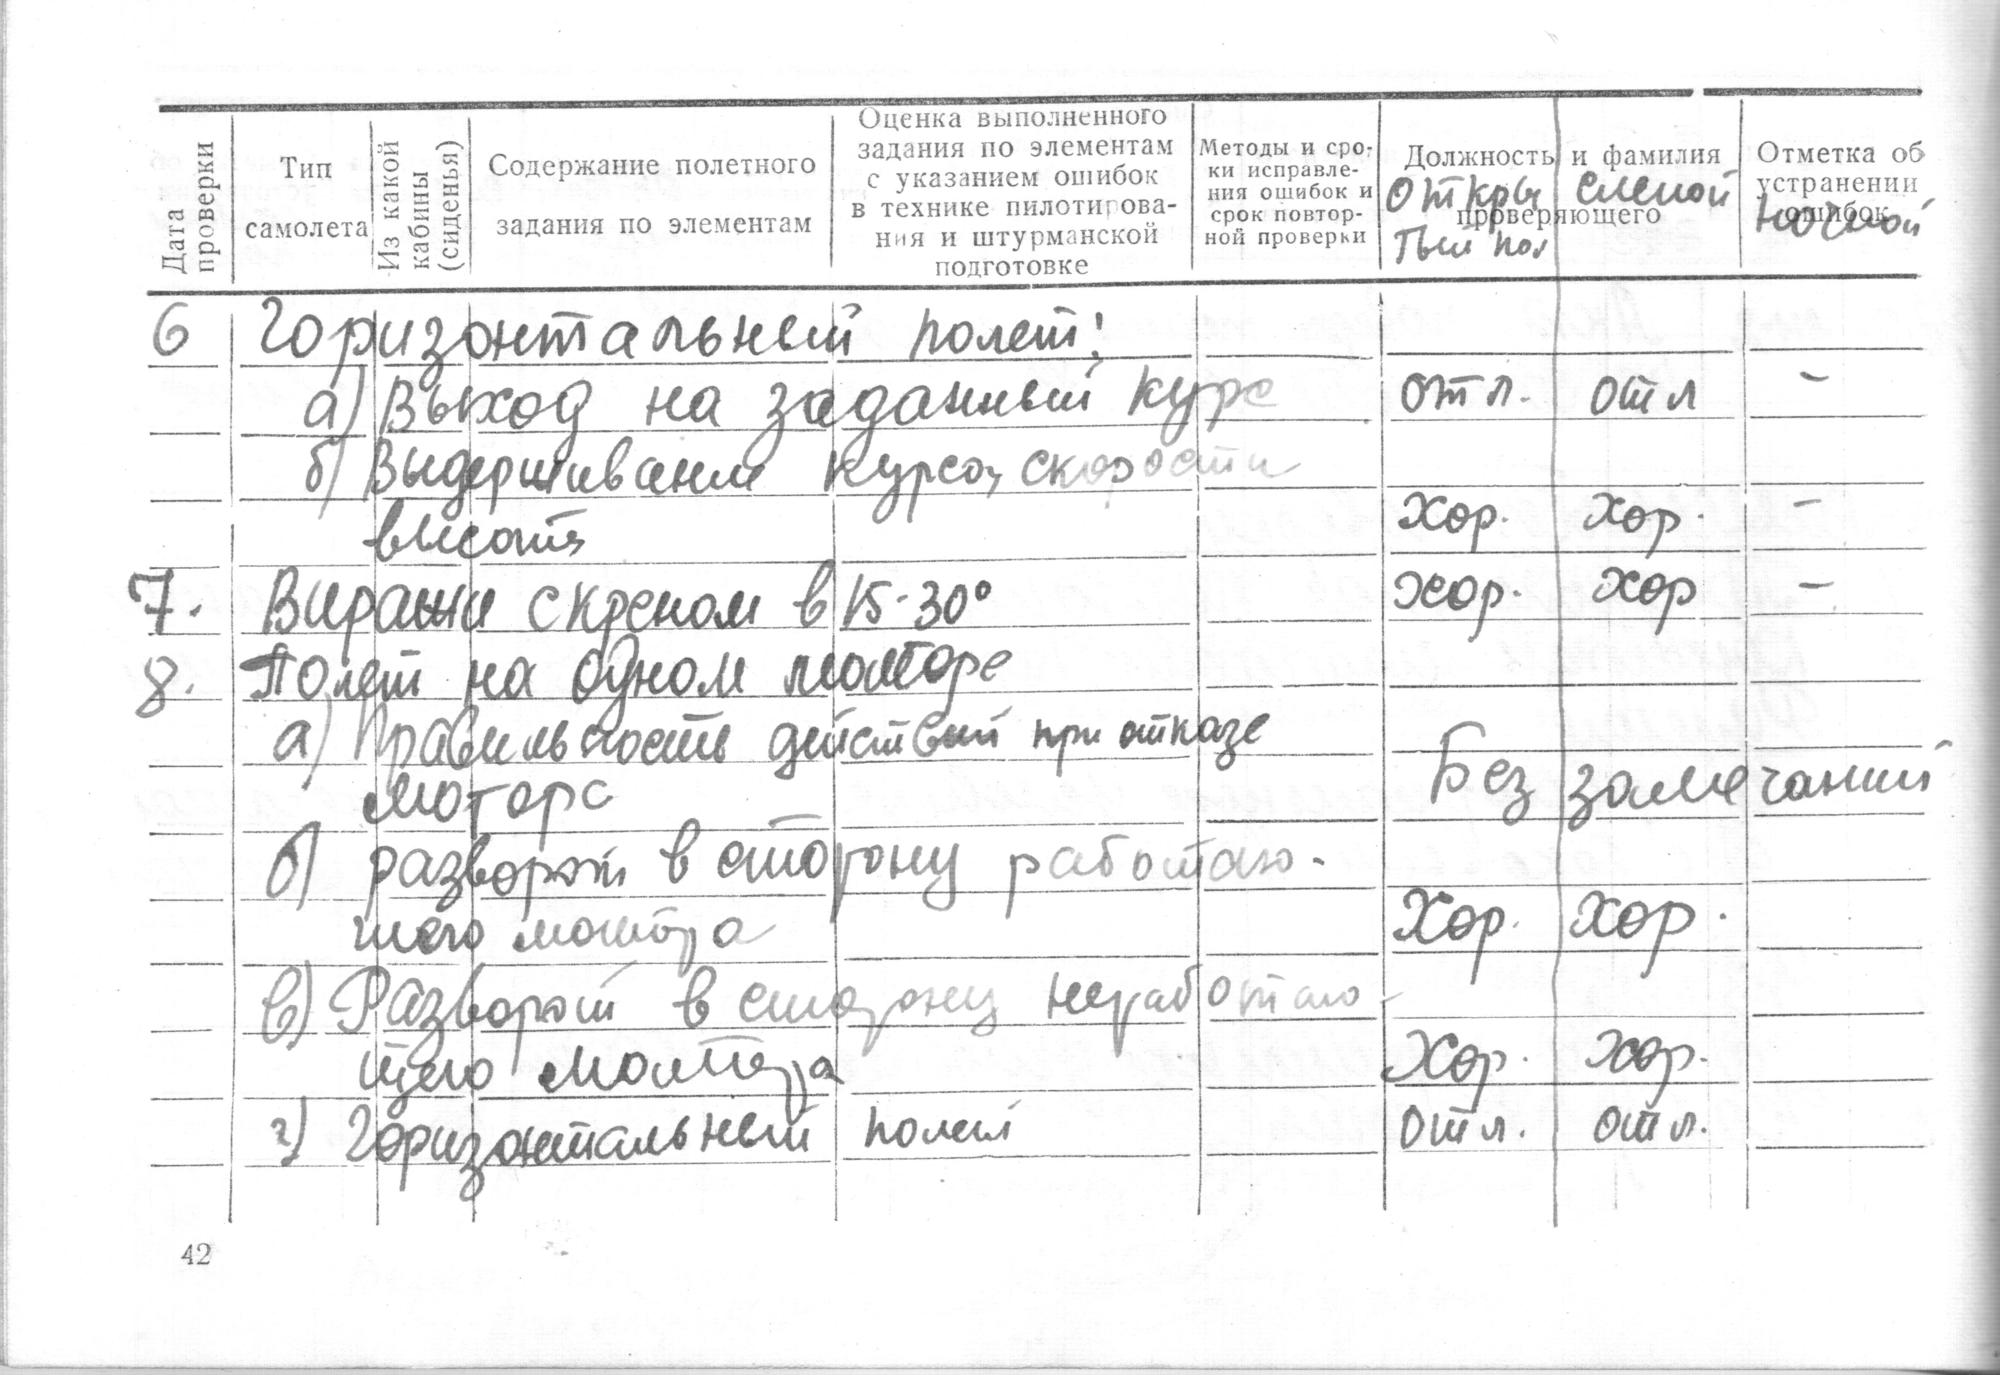 Дата проверки
Тип самолета
Из какой кабины (сиденья)
Содержание полетного задания по элементам
Оценка выполненного задания по элементам с указанием ошибок в технике пилотирования и штурманской подготовке
Методы и сроки исправления ошибок и срок повторной проверки
Должность и фамилия проверяющего
Откры слепой
тый пол
Отметка об устранении ошибок
ночной
6 Горизонтальный полет:
а) Выход на заданный курс отл. отл –
б) Выдерживание курса, скорости
высоты хор. хор. –
7. Виражи с креном в 15-30° хор. хор –
8. Полет на одном моторе
а) Правильность действий при отказе
мотора Без замечаний
б) разворот в сторону работаю-
щего мотора Хор. Хор.
в) Разворот в сторону неработаю-
щего мотора Хор. Хор.
г) Горизонтальный полет отл. отл.
42